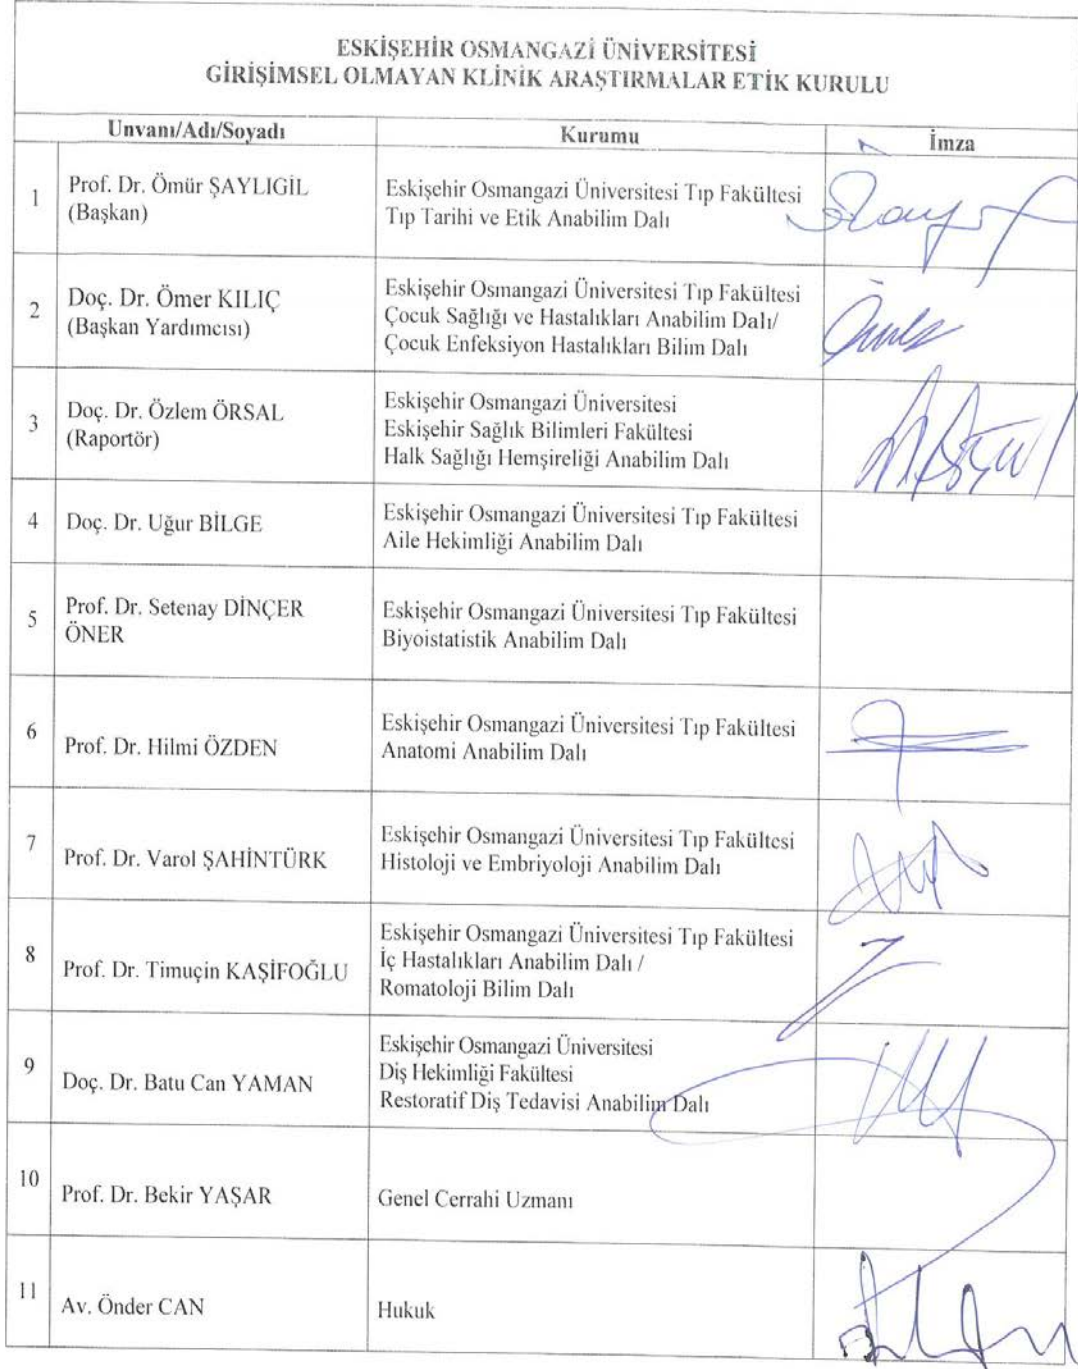 ESKİŞEHİR OSMANGAZİ ÜNİVERSİTESİ
GİRİŞİMSEL OLMAYAN KLİNİK ARAŞTIRMALAR ETİK KURULU
Unvanı/Adı/Soyadı Kurumu İmza
1 Prof. Dr. Ömür ŞAYLIGİL
(Başkan)
Eskişehir Osmangazi Üniversitesi Tıp Fakültesi
Tıp Tarihi ve Etik Anabilim Dalı
2 Doç. Dr. Ömer KILIÇ
(Başkan Yardımcısı)
Eskişehir Osmangazi Üniversitesi Tıp Fakültesi
Çocuk Sağlığı ve Hastalıkları Anabilim Dalı/
Çocuk Enfeksiyon Hastalıkları Bilim Dalı
3 Doç. Dr. Özlem ÖRSAL
(Raportör)
Eskişehir Osmangazi Üniversitesi
Eskişehir Sağlık Bilimleri Fakültesi
Halk Sağlığı Hemşireliği Anabilim Dalı
4 Doç. Dr. Uğur BİLGE
Eskişehir Osmangazi Üniversitesi Tıp Fakültesi
Aile Hekimliği Anabilim Dalı
5 Prof. Dr. Setenay DİNÇER
ÖNER
Eskişehir Osmangazi Üniversitesi Tıp Fakültesi
Biyoistatistik Anabilim Dalı
6 Prof. Dr. Hilmi ÖZDEN
Eskişehir Osmangazi Üniversitesi Tıp Fakültesi
Anatomi Anabilim Dalı
7 Prof. Dr. Varol ŞAHİNTÜRK
Eskişehir Osmangazi Üniversitesi Tıp Fakültesi
Histoloji ve Embriyoloji Anabilim Dalı
8 Prof. Dr. Timuçin KAŞİFOĞLU
Eskişehir Osmangazi Üniversitesi Tıp Fakültesi
İç Hastalıkları Anabilim Dalı /
Romatoloji Bilim Dalı
9 Doç. Dr. Batu Can YAMAN
Eskişehir Osmangazi Üniversitesi
Diş Hekimliği Fakültesi
Restoratif Diş Tedavisi Anabilim Dalı
10 Prof. Dr. Bekir YAŞAR
Genel Cerrahi Uzmanı
11 Av. Önder CAN
Hukuk